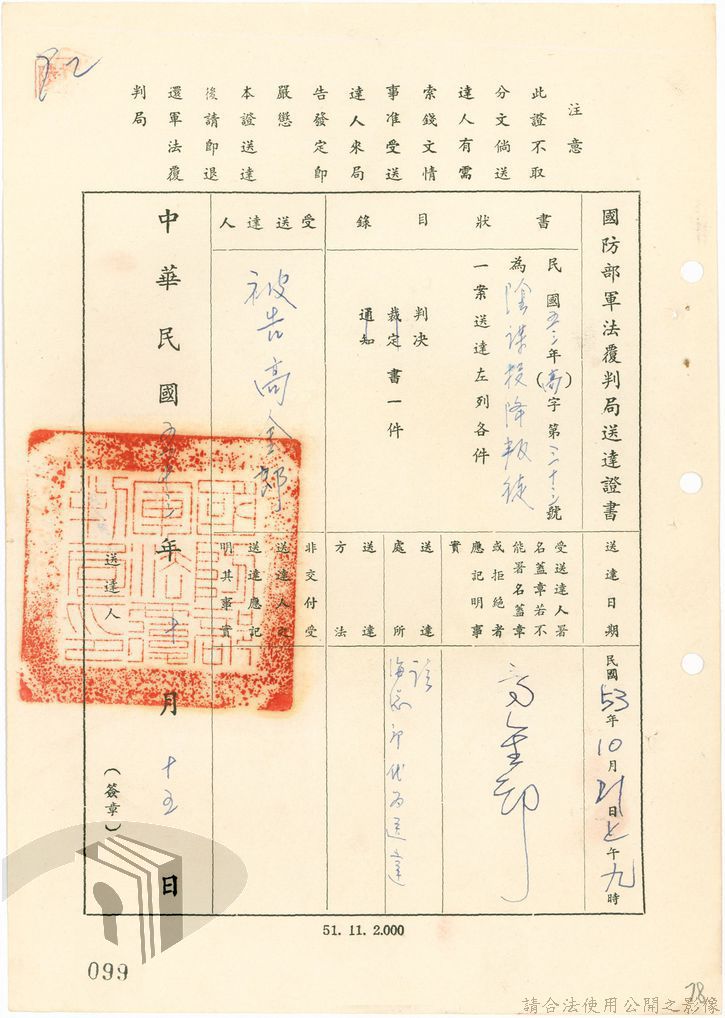 注意
此證不取
分文倘送
達人有需
索錢文情
事准受送
達人來局
告發定即
嚴懲
本證送達
後請即退
還軍法覆
判局
國防部軍法覆判局送達證書
送達日期
民國53年10月21日上午九時
書狀目錄
民國五三年(高)字第
號
為陰謀投降叛徒
一案送達左列各件
判決
裁定書一件
通知
受送達人署
名蓋章若不
能署名蓋章
或拒絕者
應記明事
實
高金郎
送達處所
送達方法
受送達人
被告高金郎
非交付受
送達人之
送達應記
明其事實
中華民國五十三年十月十五日
送達人
(簽章)
51. 11. 2.000
099
78
請合法使用公開之影像